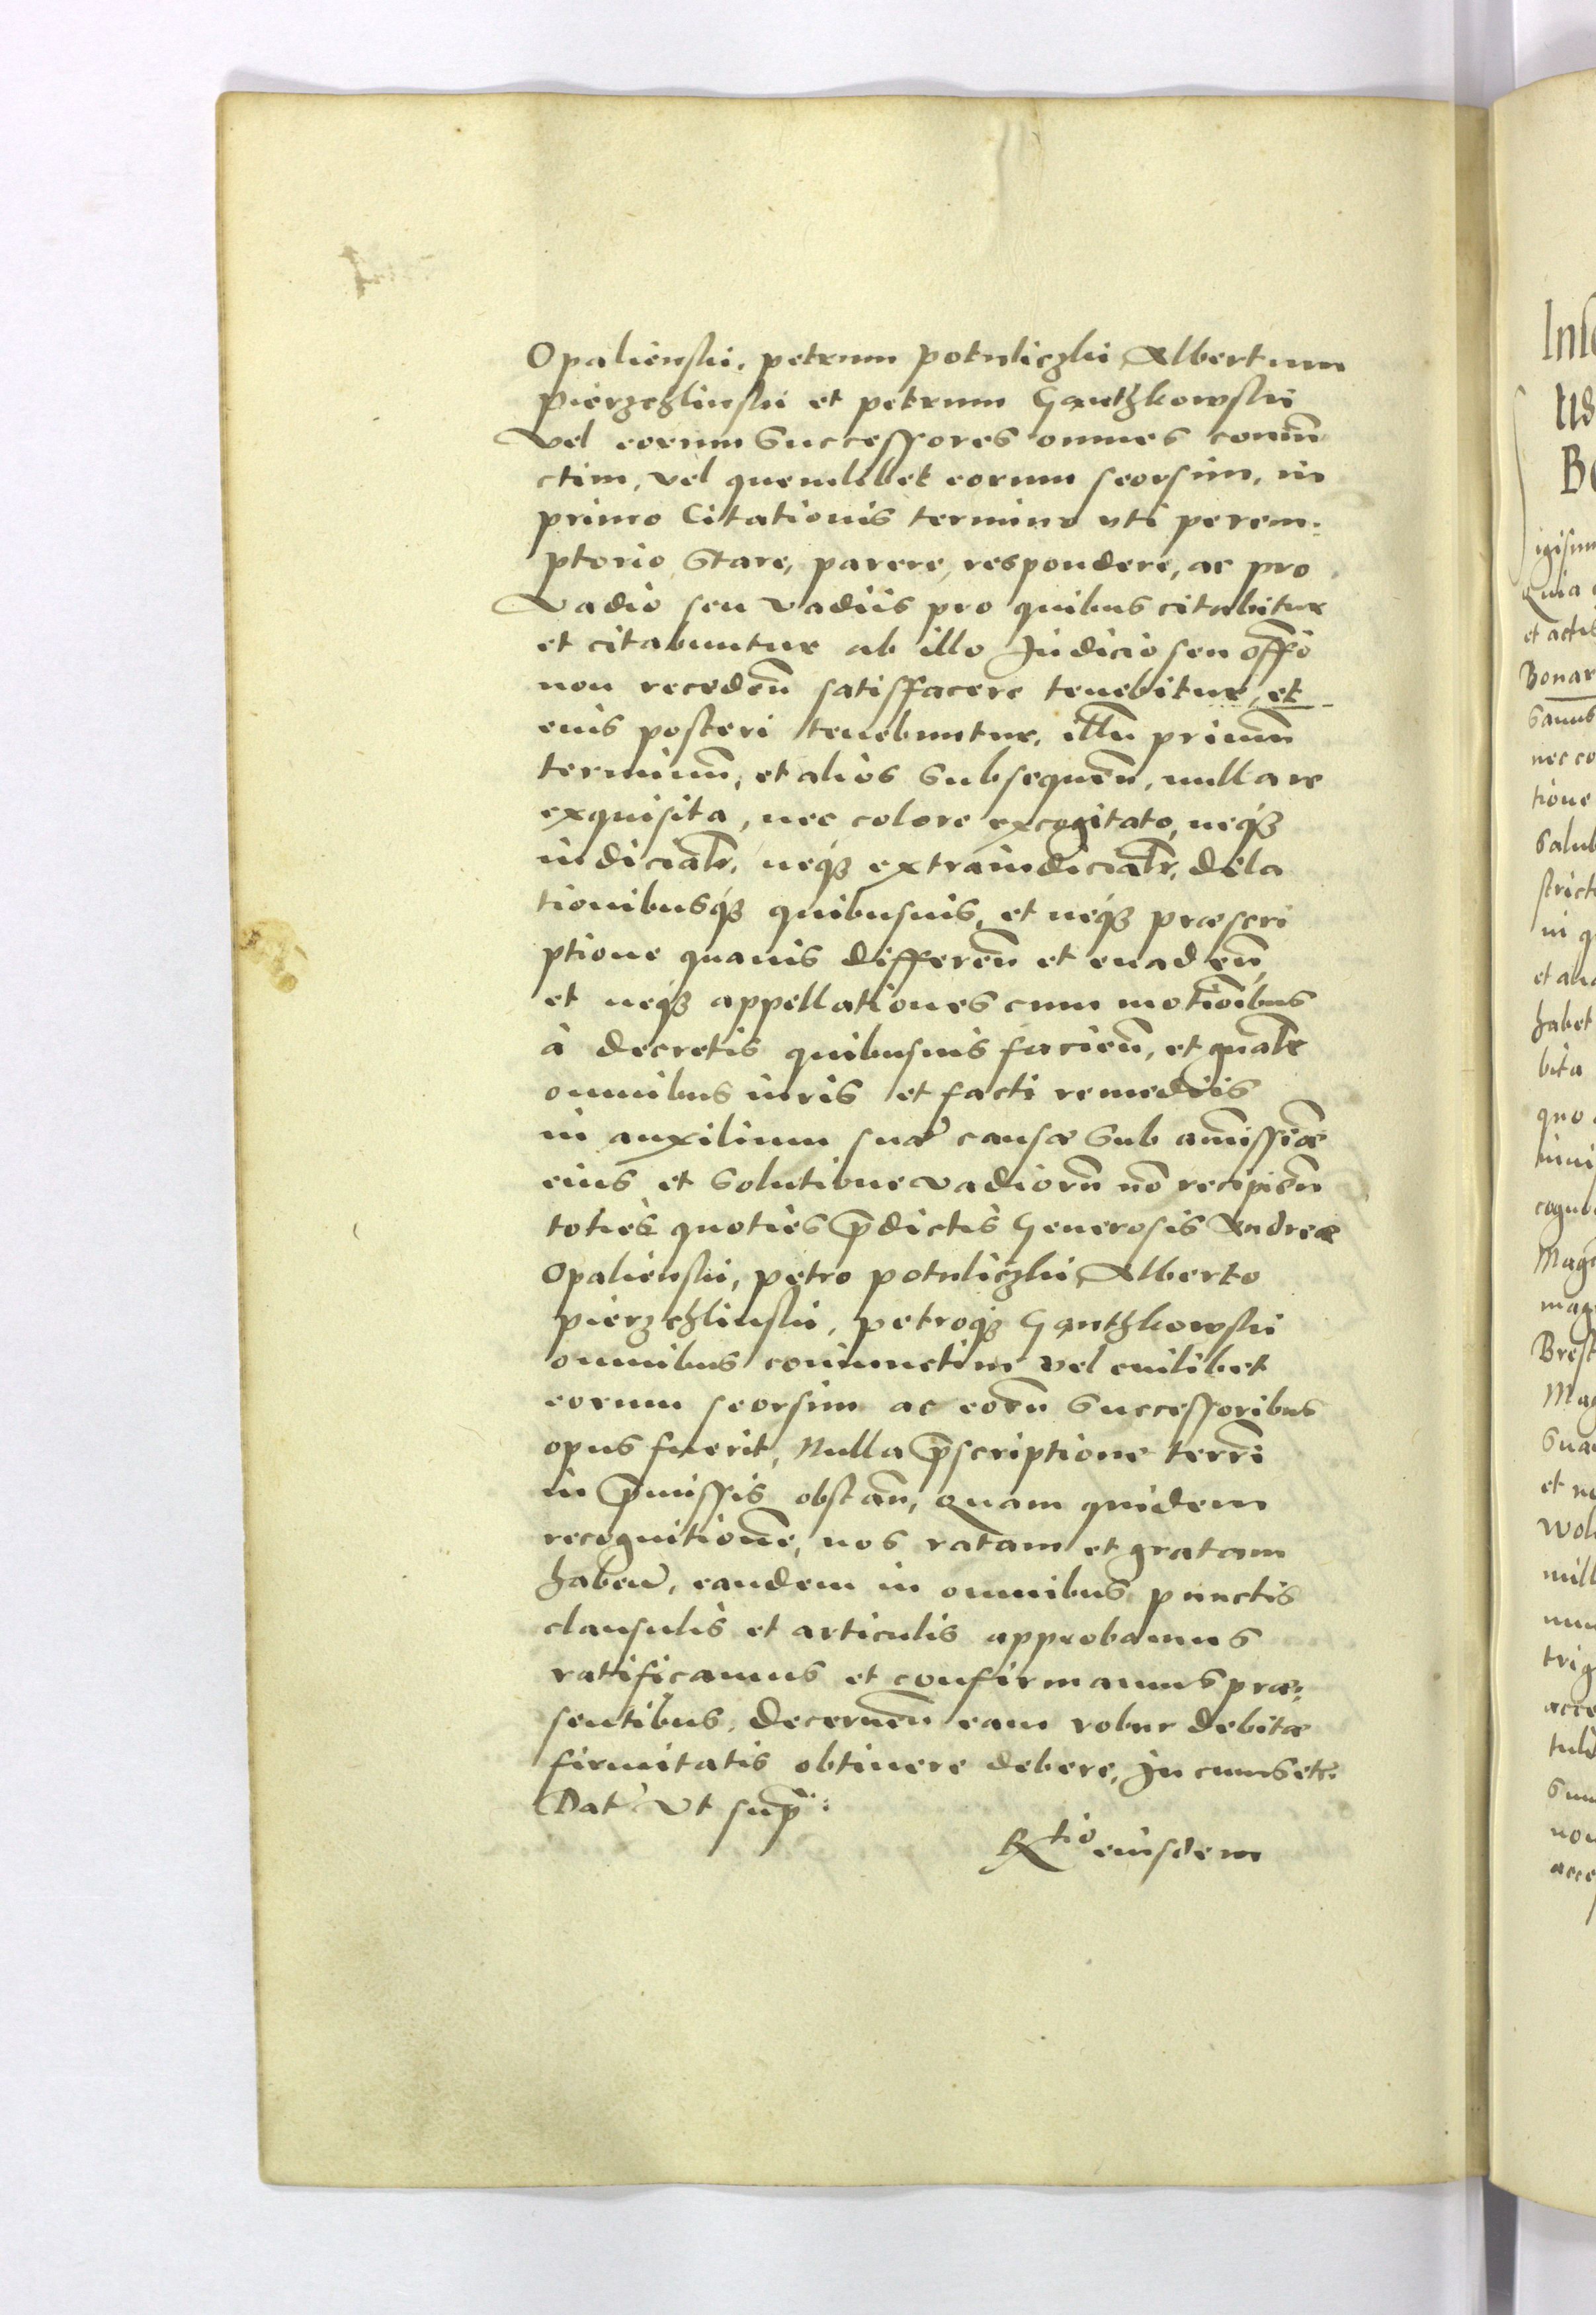 Opalienski, petrum Potuliczki Albertum
pierzchlinski et petrum Ganthkowski
vel eorum Successores omnes coniūn
ctim, vel quemlibet eorum seorsim, in
primo Citationis termino vti perem:
ptorio, Stare, parere, respondere, ac pro
Vadio seu vadiis pro quibus citabitur
et citabuntur ab illo Judicio seu offō
non recedeñ satisfacere tenebitur, et
eius posteri tenebuntur, illū primū
terminū, et alios Subsequeñ, nulla re
exquisita, nec colore excogitato, neq3
iudicialr, neq3 extraiudicialr, dila
tionibusq3 quibusuis, et neq3 præscri
ptione quauis differeñ et euadeñ,
et neq3 appellationes cum motioībus
à decretis quibusuis facieñ, et gñalr
omnibus iuris et facti remediis
in auxilium suæ causæ Sub amissiōe
eius et Solutione vadiorū nō recipieñ
toties quoties p̄dictis Generosis Andreæ
Opalienski, petro potuliczki Alberto
pierzchlinski, petroq3 Ganthkowski
omnibus coniunctim vel cuilibet
eorum seorsim ac eorū Successoribus
opus fuerit, Nulla p̄scriptione terrī
in p̄missis obstañ, Quam quidem
recognitionē, nos ratam et gratam
habeñ, eandem in omnibus punctis
clausulis et articulis approbamus
ratificamus et confirmamus præ:
sentibus, decerneñ eam robur debitæ
firmitatis obtinere debere, In cuius etc.
Dat Vt sup̄:
Rtio eiusdem
Inſ
tis
Bo
igism
Quia
et actib
Bonar
Sanus
nec co
tione
salub
stricti
in q
et ali
habet
bita
quo
nimi
cogub
Mag
mag
Brest
Mag
Sua
et no
wol
mill
trig
acce
tul
Sum
non
acce